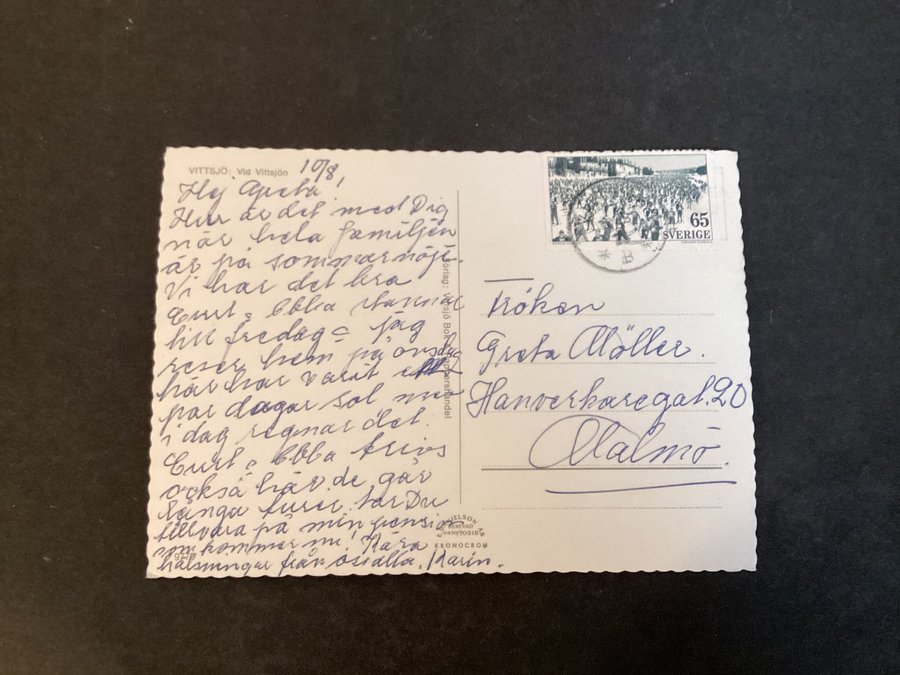 VITTSJÖ: Vid Vittsjön
10/8
Hej Greta!
Hur är det med Dig
när hela familjen
är på sommarnöje.
Vi har det bra
Curt o Ebba stannar
till fredag = jag
reser hem på onsdag
här har varit ett
par dagar sol men
i dag regnar det.
Curt o Ebba trivs
också här de går
långa turer. tar Du
tillvara på min pensi
som kommer nu. Kära
hälsningar från oss alla. Karin.
65
SVERIGE
Fröken
Greta Möller.
Hanverkaregat. 20
Malmö.
KRONOCROM